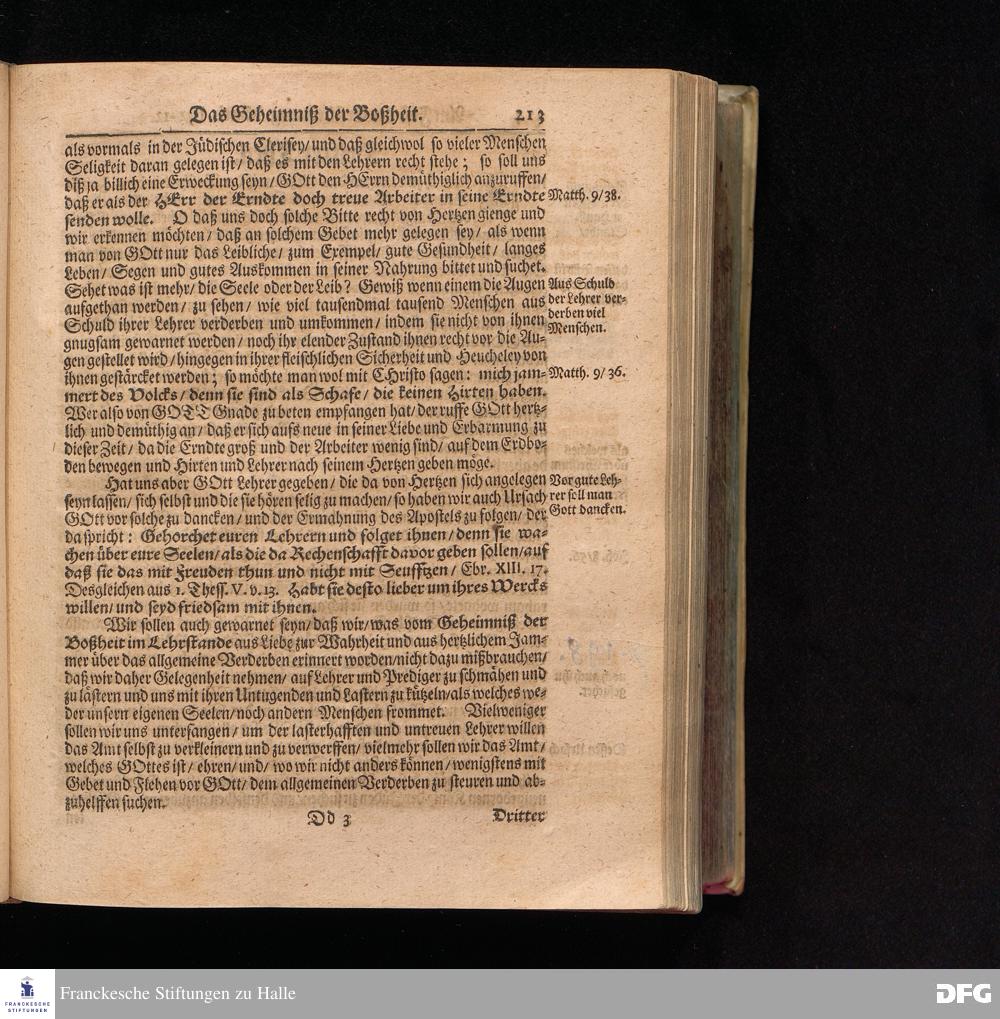 Das Geheimniß der Boßheit. 213
als vormals in der Jüdischen Clerisey/und daß gleichwol so vieler Menschen
Seligkeit daran gelegen ist/ daß es mit den Lehrern recht stehe; so soll uns
diß ja billich eine Erweckung seyn/ GOtt den HErrn demüthiglich anzuruffen/
daß er als der HErr der Erndte doch treue Arbeiter in seine Erndte
Matth. 9/38.
senden wolle. O daß uns doch solche Bitte recht von Hertzen gienge und
wir erkennen möchten/ daß an solchem Gebet mehr gelegen sey/ als wenn
man von GOtt nur das Leibliche/ zum Exempel/ gute Gesundheit/ langes
Leben/ Segen und gutes Auskommen in seiner Nahrung bittet und suchet.
Sehet was ist mehr/ die Seele oder der Leib? Gewiß wenn einem die Augen
aufgethan werden/ zu sehen/ wie viel tausendmal tausend Menschen aus
Schuld ihrer Lehrer verderben und umkommen/ indem sie nicht von ihnen
Aus Schuld
der Lehrer ver-
derben viel
Menschen.
gnugsam gewarnet werden/ noch ihr elender Zustand ihnen recht vor die Au-
gen gestellet wird/ hingegen in ihrer fleischlichen Sicherheit und Heucheley von
ihnen gestärcket werden; so möchte man wol mit CHristo sagen: mich jam-
Matth. 9/36.
mert des Volcks/ denn sie sind als Schafe/ die keinen Hirten haben.
Wer also von GOTT Gnade zu beten empfangen hat/ der ruffe GOtt hertz-
lich und demüthig an/ daß er sich aufs neue in seiner Liebe und Erbarmung zu
dieser Zeit/ da die Erndte groß und der Arbeiter wenig sind/ auf dem Erdbo-
den bewegen und Hirten und Lehrer nach seinem Hertzen geben möge.
Hat uns aber GOtt Lehrer gegeben/ die da von Hertzen sich angelegen
seyn lassen/ sich selbst und die sie hören selig zu machen/ so haben wir auch Ursach
GOtt vor solche zu dancken/ und der Ermahnung des Apostels zu folgen/ der
Vor gute Leh-
rer soll man
Gott dancken.
da spricht: Gehorchet euren Lehrern und folget ihnen/ denn sie wa-
chen über eure Seelen/ als die da Rechenschafft davor geben sollen/auf
daß sie das mit Freuden thun und nicht mit Seufftzen/ Ebr. XIII. 17.
Desgleichen aus 1. Thess. V. v. 13. Habt sie desto lieber um ihres Wercks
willen/ und seyd friedsam mit ihnen.
Wir sollen auch gewarnet seyn/ daß wir/ was vom Geheimniß der
Boßheit im Lehrstande aus Liebe zur Wahrheit und aus hertzlichem Jam-
mer über das allgemeine Verderben erinnert worden/nicht dazu mißbrauchen/
daß wir daher Gelegenheit nehmen/ auf Lehrer und Prediger zu schmähen und
zu lästern und uns mit ihren Untugenden und Lastern zu kützeln/als welches we-
der unsern eigenen Seelen/noch andern Menschen frommet. Vielweniger
sollen wir uns unterfangen/ um der lasterhafften und untreuen Lehrer willen
das Amt selbst zu verkleinern und zu verwerffen/ vielmehr sollen wir das Amt/
welches GOttes ist/ ehren/ und/ wo wir nicht anders können/ wenigstens mit
Gebet und Flehen vor GOtt/ dem allgemeinen Verderben zu steuren und ab-
zuhelffen suchen.
Dd 3 Dritter
FRANCKESCHE
STIFTUNGEN
Franckesche Stiftungen zu Halle
DFG